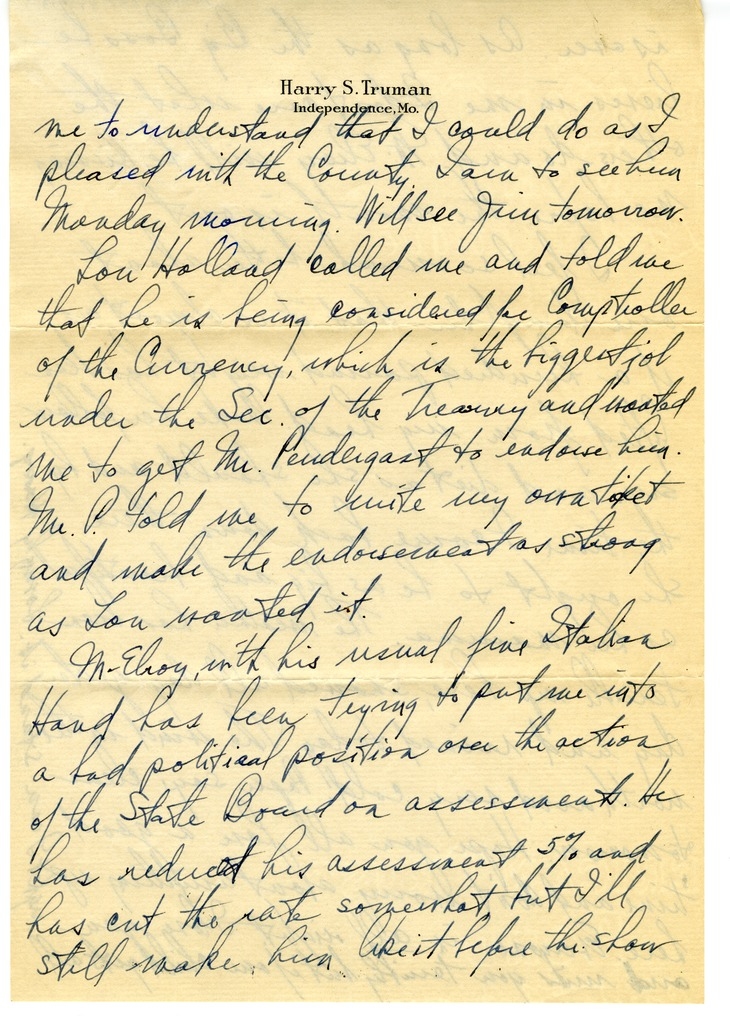 Harry S. Truman
Independence, Mo.
me to understand that I could do as I
pleased with the County. I am to see him
Monday morning. Will see Jim tomorrow.
Lou Holland called me and told me
that he is being considered for Comptroller
of the Currency, which is the biggest job
under the Sec. of the Treasury and wanted
me to get Mr. Pendergast to endorse him.
Mr. P. told me to write my own ticket
and make the endorsement as strong
as Lou wanted it.
McElroy, with his usual fine Italian
Hand has been trying to put me into
a bad political position over the action
of the State Board on assessments. He
has reduced his assessment 5% and
has cut the rate somewhat but I'll
still make him like it before the show